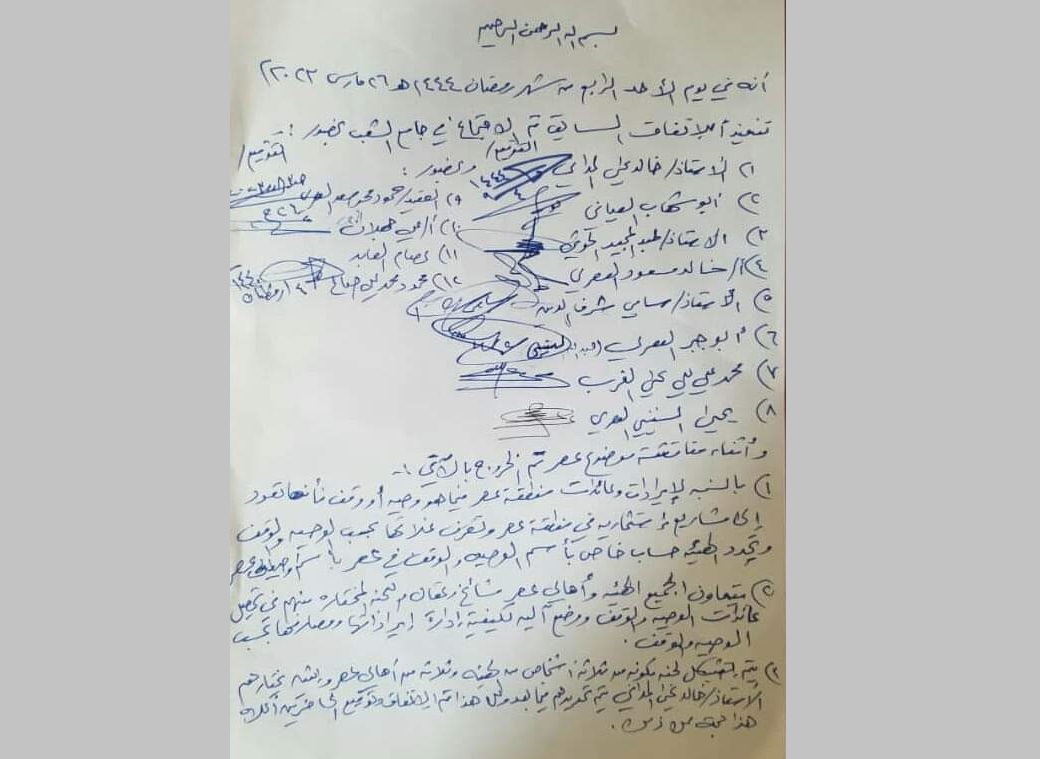 بسم الله الرحمن الرحيم
أنه في يوم الأحد الرابع من شهر رمضان ١٤٤٤هـ ٢٦ مارس ٢٠٢٣
تنفيذاً للاتفاق السابق تم الاجتماع في جامع الشعب بحضور :
التوقيع/
وبحضور :
التوقيع/
١) الأستاذ/ خالد علي المداني
٢) أبو شهاب العياني
٣) الاستاذ/ عبدالمجيد الحوثي
٤) أ/ خالد مسعود العصري
٥) الأستاذ/ سامي شرف الدين
٦) أبو جبر العصري
٧) محمد علي علي الغرب
٨) يحيى السنيني العصري
٩) العقيد/ محمود محمد سعد
١٠) أ/
١١) عصام العابد
١٢) محمود محمد صالح
وأثناء مناقشة موضوع عصر تم الخروج بالآتي :-
١) بالنسبه للإيرادات وعائدات منطقة عصر فيما هو وصيه أو وقف فأنها تعود
إلى مشاريع استثماريه في منطقة عصر وتصرف غلاتها بحسب الوصيه والوقف
وتحدد الهيئه حساب خاص بأسم الوصيه والوقف في عصر
٢) يتعاون الجميع الهيئه وأهالي عصر مشائخ وعقال واللجنه المختاره منهم في تحصيل
عائدات الوصيه والوقف ووضع آليه لكيفية إدارة إيراداتها ومصارفها بحسب
الوصيه والوقف .
٣) يتم تشكيل لجنه مكونه من ثلاثة أشخاص من الهيئه وثلاثه من أهالي عصر يختارهم
الأستاذ/ خالد علي المداني يتم تحديدهم فيما بعد وعلى هذا تم الاتفاق وتوقيع الحاضرين
هذا